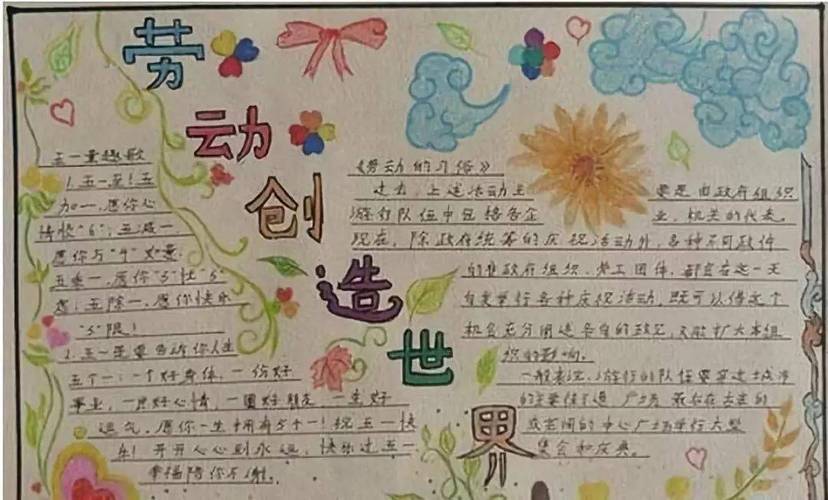 劳动创造世界
五一童趣歌
1.五一至!五
加一,愿你心
情快"6";五减一,
愿你与"4"如意;
五乘一,愿你"5"忧"5"
虑;五除一,愿你快乐
"5"限!
2.五一是要告诉你人生
五个一:一个好身体,一份好
事业,一良好心情,一圈好朋友,一生好
运气,愿你一生拥有5个一!祝五一快
乐!开开心心到永远,快乐过五一
幸福陪你不谢.
《劳动的习俗》
过去,上述活动主要是由政府组织
游行队伍中包括各企业,机关的代表。
现在,除政府统筹的庆祝活动外,各种不同政件
的非政府组织、劳工团体,都宜在这一天
自发举行各种庆祝活动,既可以借这个
机会充分阐述各自的政见,又能扩大本组
织的影响。
一般来说,游行的队伍要穿过城市
的主要街道、广场,最后在古老的
或空阔的中心广场举行大型
集会和庆典。